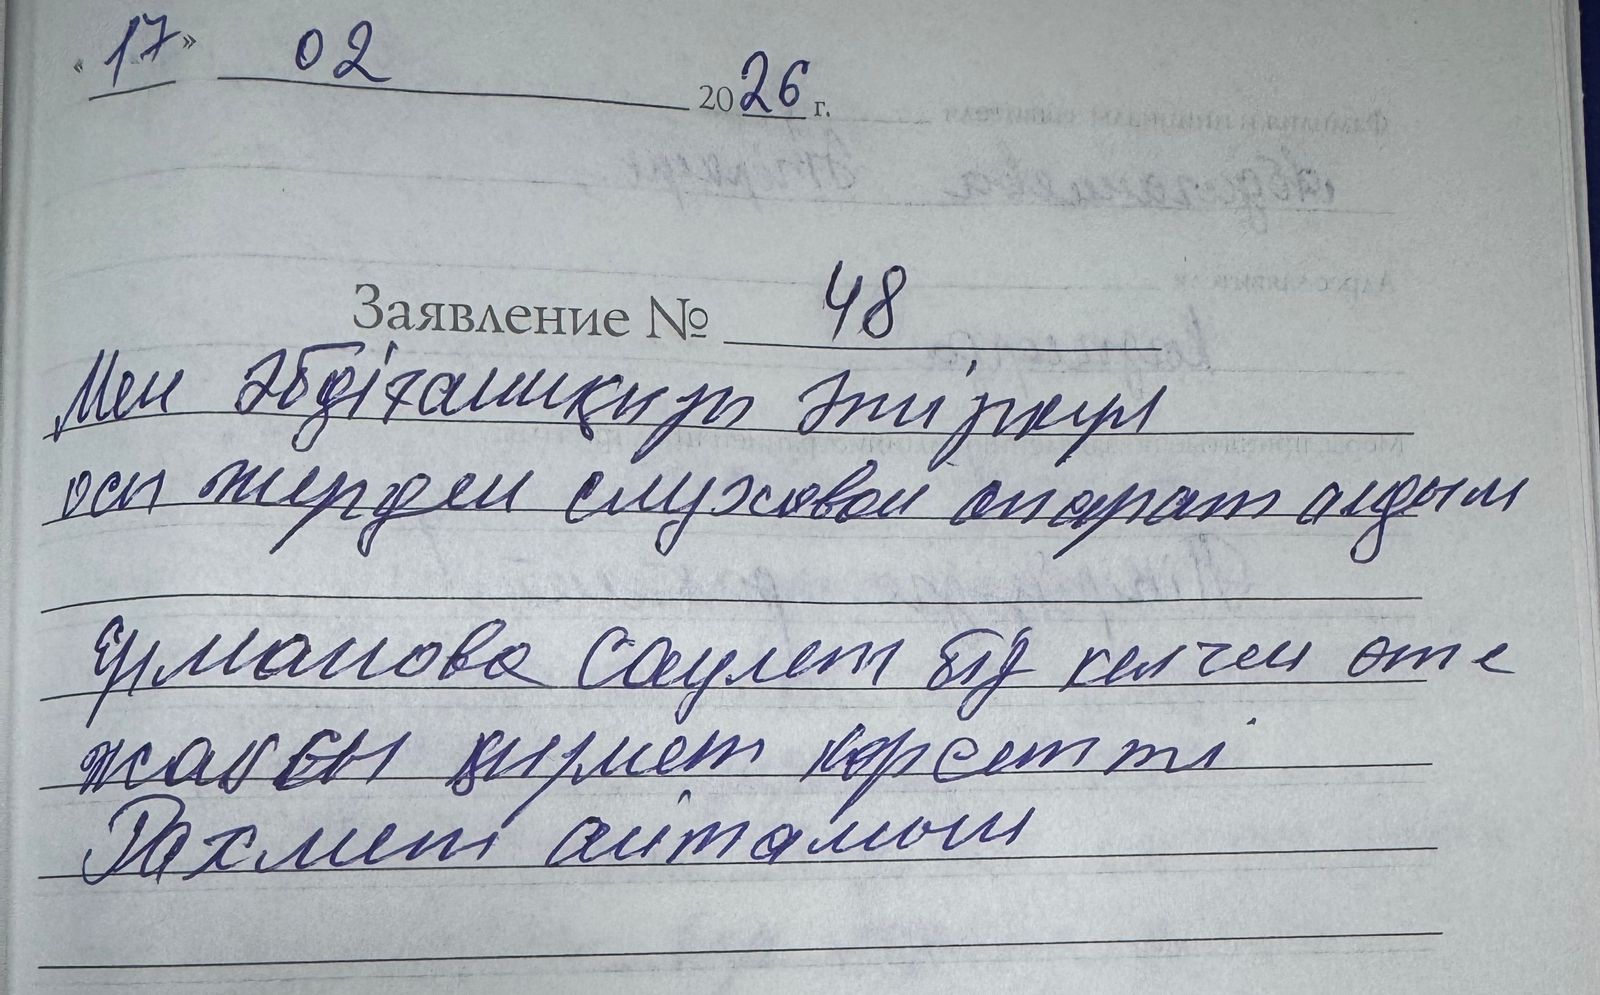 «17» 02 2026 г.
Заявление № 48
Мен Әбдіхашикизы Әтіркүл
осы жерден слуховой апарат алдым
Ерманова Саулет біз келген өте
жаксы қызмет көрсетті
Рахмет айтамын